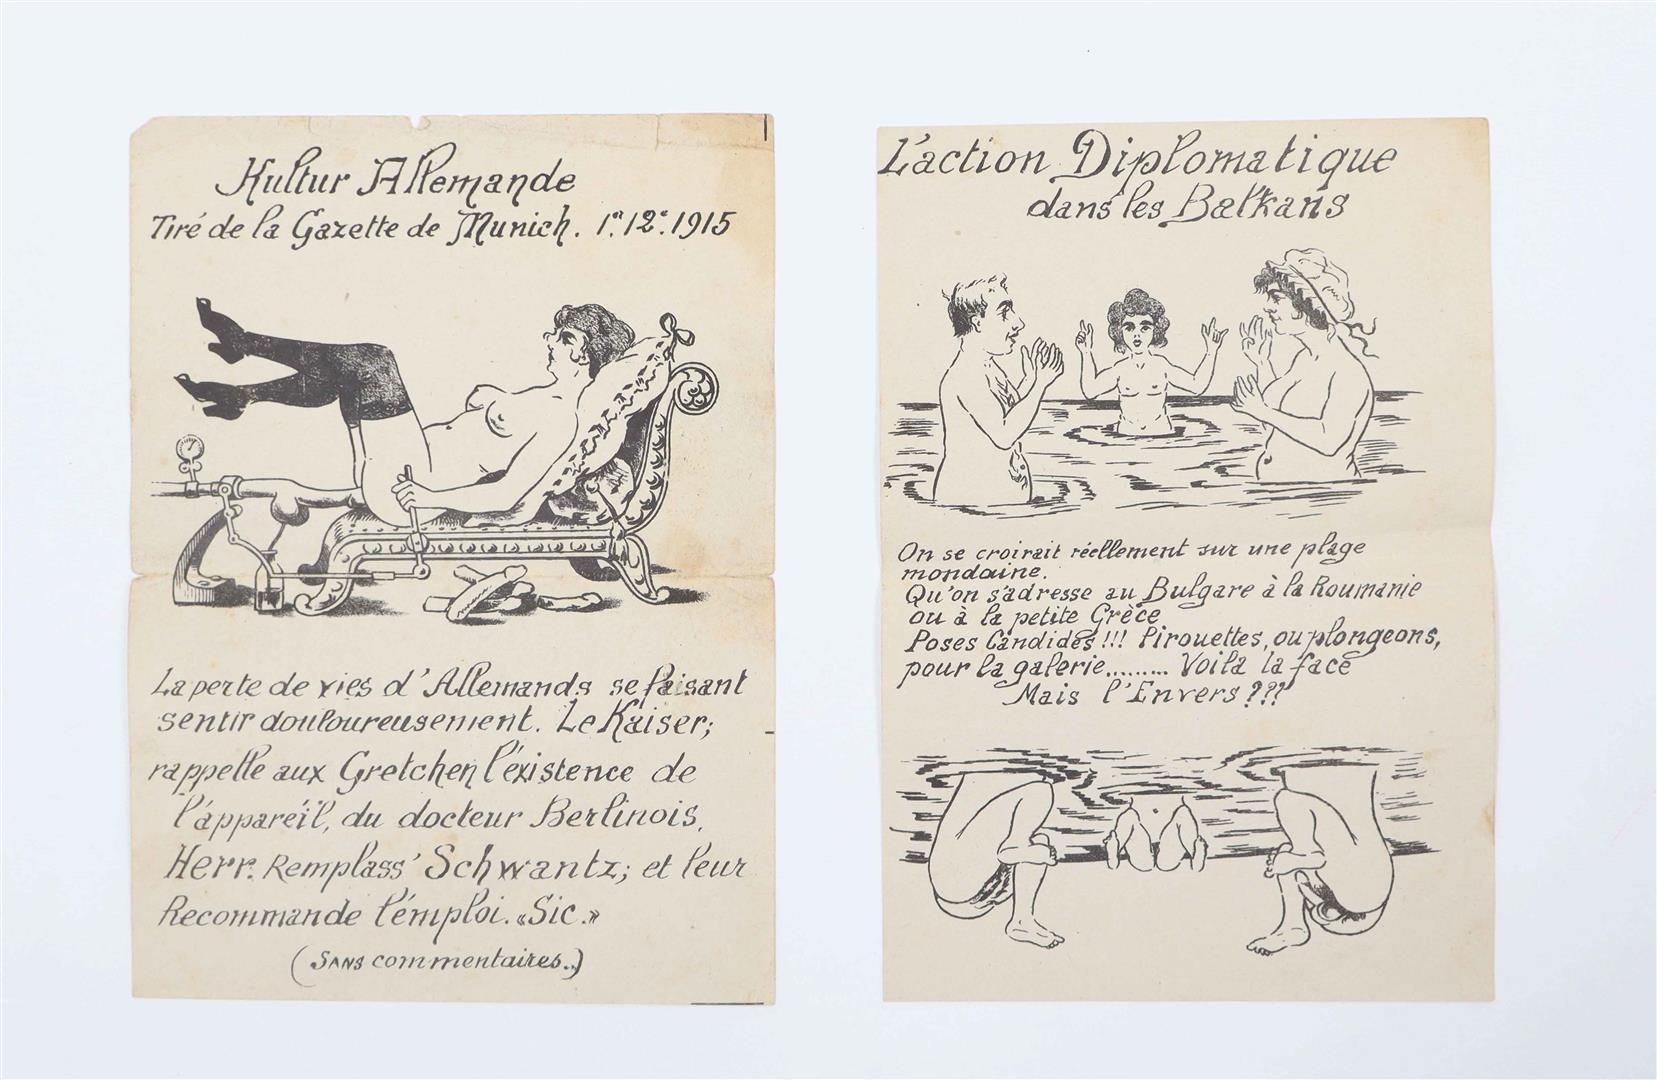 Kultur Allemande
Tiré de la Gazette de Munich. 1er. 12e. 1915
La perte de vies d'Allemands se faisant
sentir douloureusement. Le Kaiser;
rappelle aux Gretchen l'éxistence de
l'appareil, du docteur Berlinois,
Herr. Remplass' Schwantz; et leur
Recommande l'émploi. «Sic.»
(Sans commentaires..)
L'action Diplomatique
dans les Balkans
On se croirait réellement sur une plage
mondaine.
Qu'on s'adresse au Bulgare à la Roumanie
ou à la petite Grèce
Poses Candides!!! Pirouettes, ou plongeons,
pour la galerie......... Voila la face
Mais l'Envers???